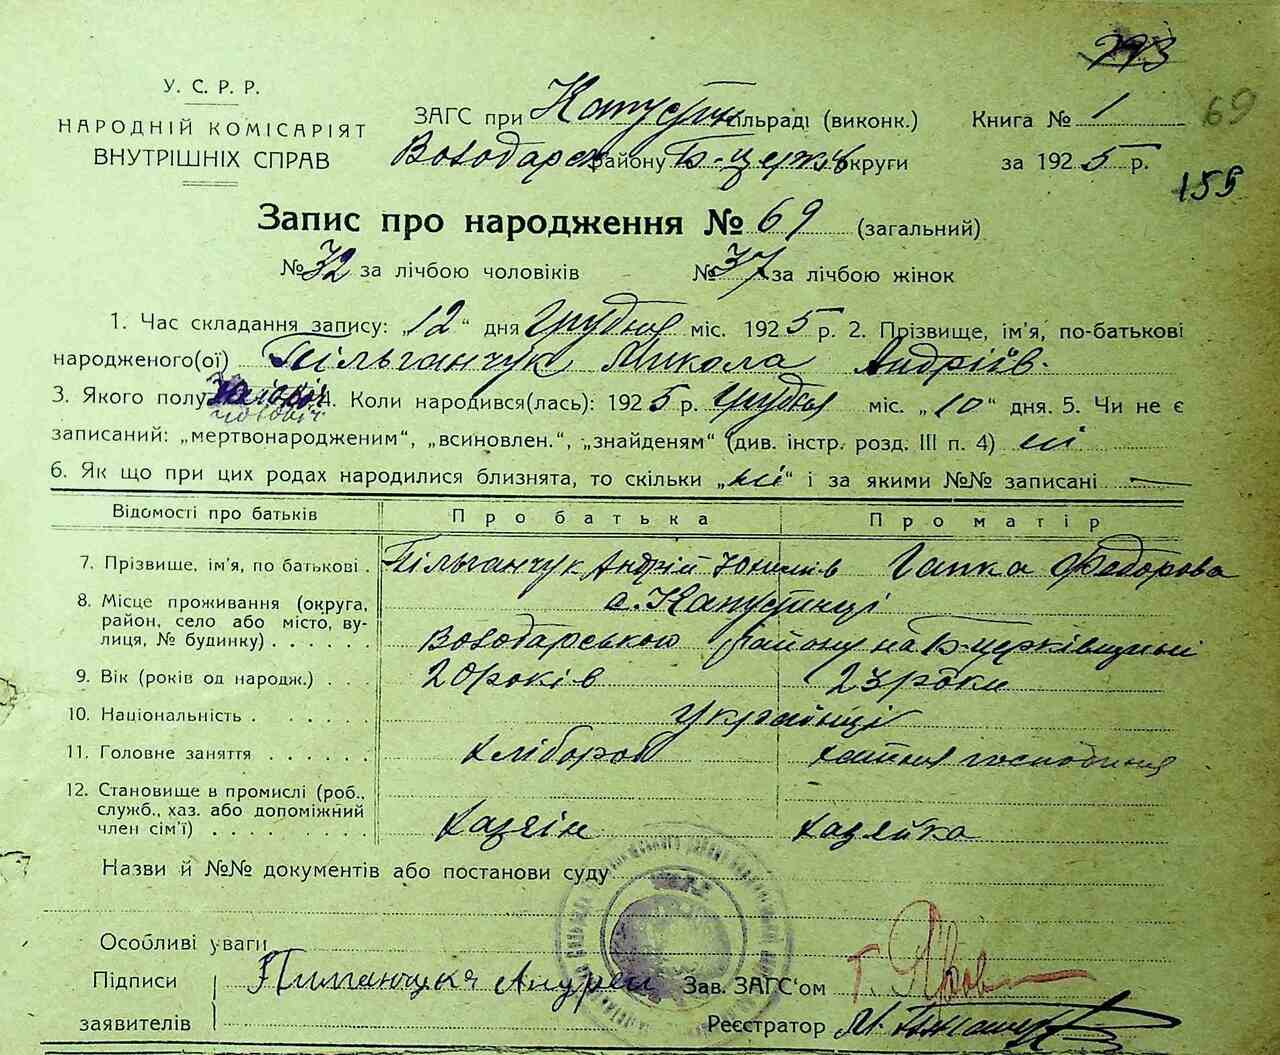 773
У. С. Р. Р.
НАРОДНІЙ КОМІСАРІЯТ
ВНУТРІШНІХ СПРАВ
ЗАГС при Капустин сільраді (виконк.)
Володарськ району Б-церків округи
Книга № 1
за 1925 р.
69
155
Запис про народження № 69 (загальний)
№ 32 за лічбою чоловіків № 37 за лічбою жінок
1. Час складання запису: „12“ дня грудня міс. 1925 р. 2. Прізвище, ім'я, по-батькові
народженого(ої) Пільганчук Микола Андріїв.
3. Якого полу чоловіч 4. Коли народився(лась): 1925 р. грудня міс. „10“ дня. 5. Чи не є
чоловіч
записаний: „мертвонародженим“, „всиновлен.“, „знайденям“ (див. інстр. розд. III п. 4) ні
6. Як що при цих родах народилися близнята, то скільки „ні“ і за якими №№ записані —
Відомості про батьків Про батька Про матір
7. Прізвище, ім'я, по батькові . Пільганчук Андрій Юхимів Гапка Федорова
8. Місце проживання (округа, с. Капустинці
район, село або місто, ву-
лиця, № будинку) . . . . . . Володарського району на Б-церківщині
9. Вік (років од народж.) . . . 20 років 23 роки
10. Національність . . . . . . . українці
11. Головне заняття . . . . . . хлібороб хатня господиня
12. Становище в промислі (роб.,
служб., хаз. або допоміжний
член сім'ї) . . . . . . . . хазяїн хазяйка
Назви й №№ документів або постанови суду
Особливі уваги
Підписи Андрей Зав. ЗАГС'ом
заявителів Реєстратор